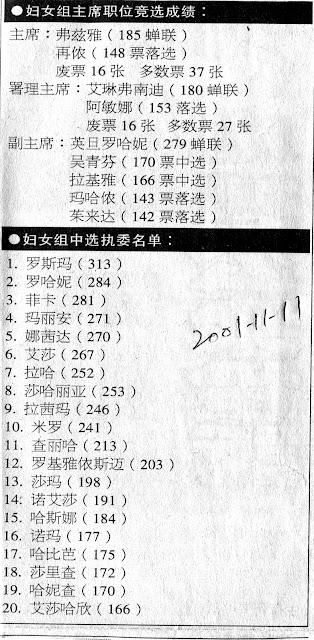 ●妇女组主席职位竞选成绩：
主席：弗兹雅（185 蝉联）
再侬（148 票落选）
废票 16 张 多数票 37 张
署理主席：艾琳弗南迪（180 蝉联）
阿敏娜（153 落选）
废票 16 张 多数票 27 张
副主席：英旦罗哈妮（279 蝉联）
吴青芬（170 票中选）
拉基雅（166 票中选）
玛哈侬（143 票落选）
茱来达（142 票落选）
●妇女组中选执委名单：
1. 罗斯玛（313）
2. 罗哈妮（284）
3. 菲卡（281）
4. 玛丽安（271）
5. 娜茜达（270）
6. 艾莎（267）
7. 拉哈（252）
8. 莎哈丽亚（253）
9. 拉茜玛（246）
10. 米罗（241）
11. 查丽哈（213）
12. 罗基雅依斯迈（203）
13. 莎玛（198）
14. 诺艾莎（191）
15. 哈斯娜（184）
16. 诺玛（177）
17. 哈比芭（175）
18. 莎里查（172）
19. 哈妮查（170）
20. 艾莎哈欣（166）
2001-11-11